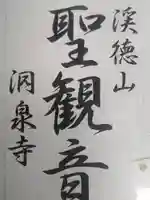 渓德山
聖観音
洞泉寺